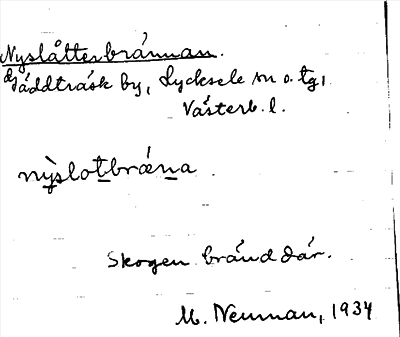 Nyslåtterbrännan.
Gäddträsk by, Lycksele sn o. tg,
Västerb. l.
nỳslotbræna.
Skogen bränd där.
M. Neuman, 1934